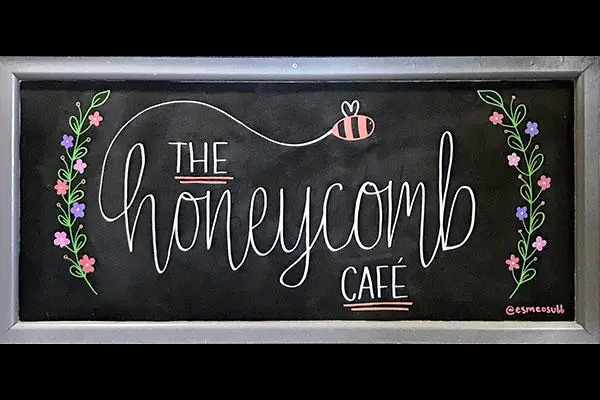 THE
honeycomb
CAFÉ
@esmeosull